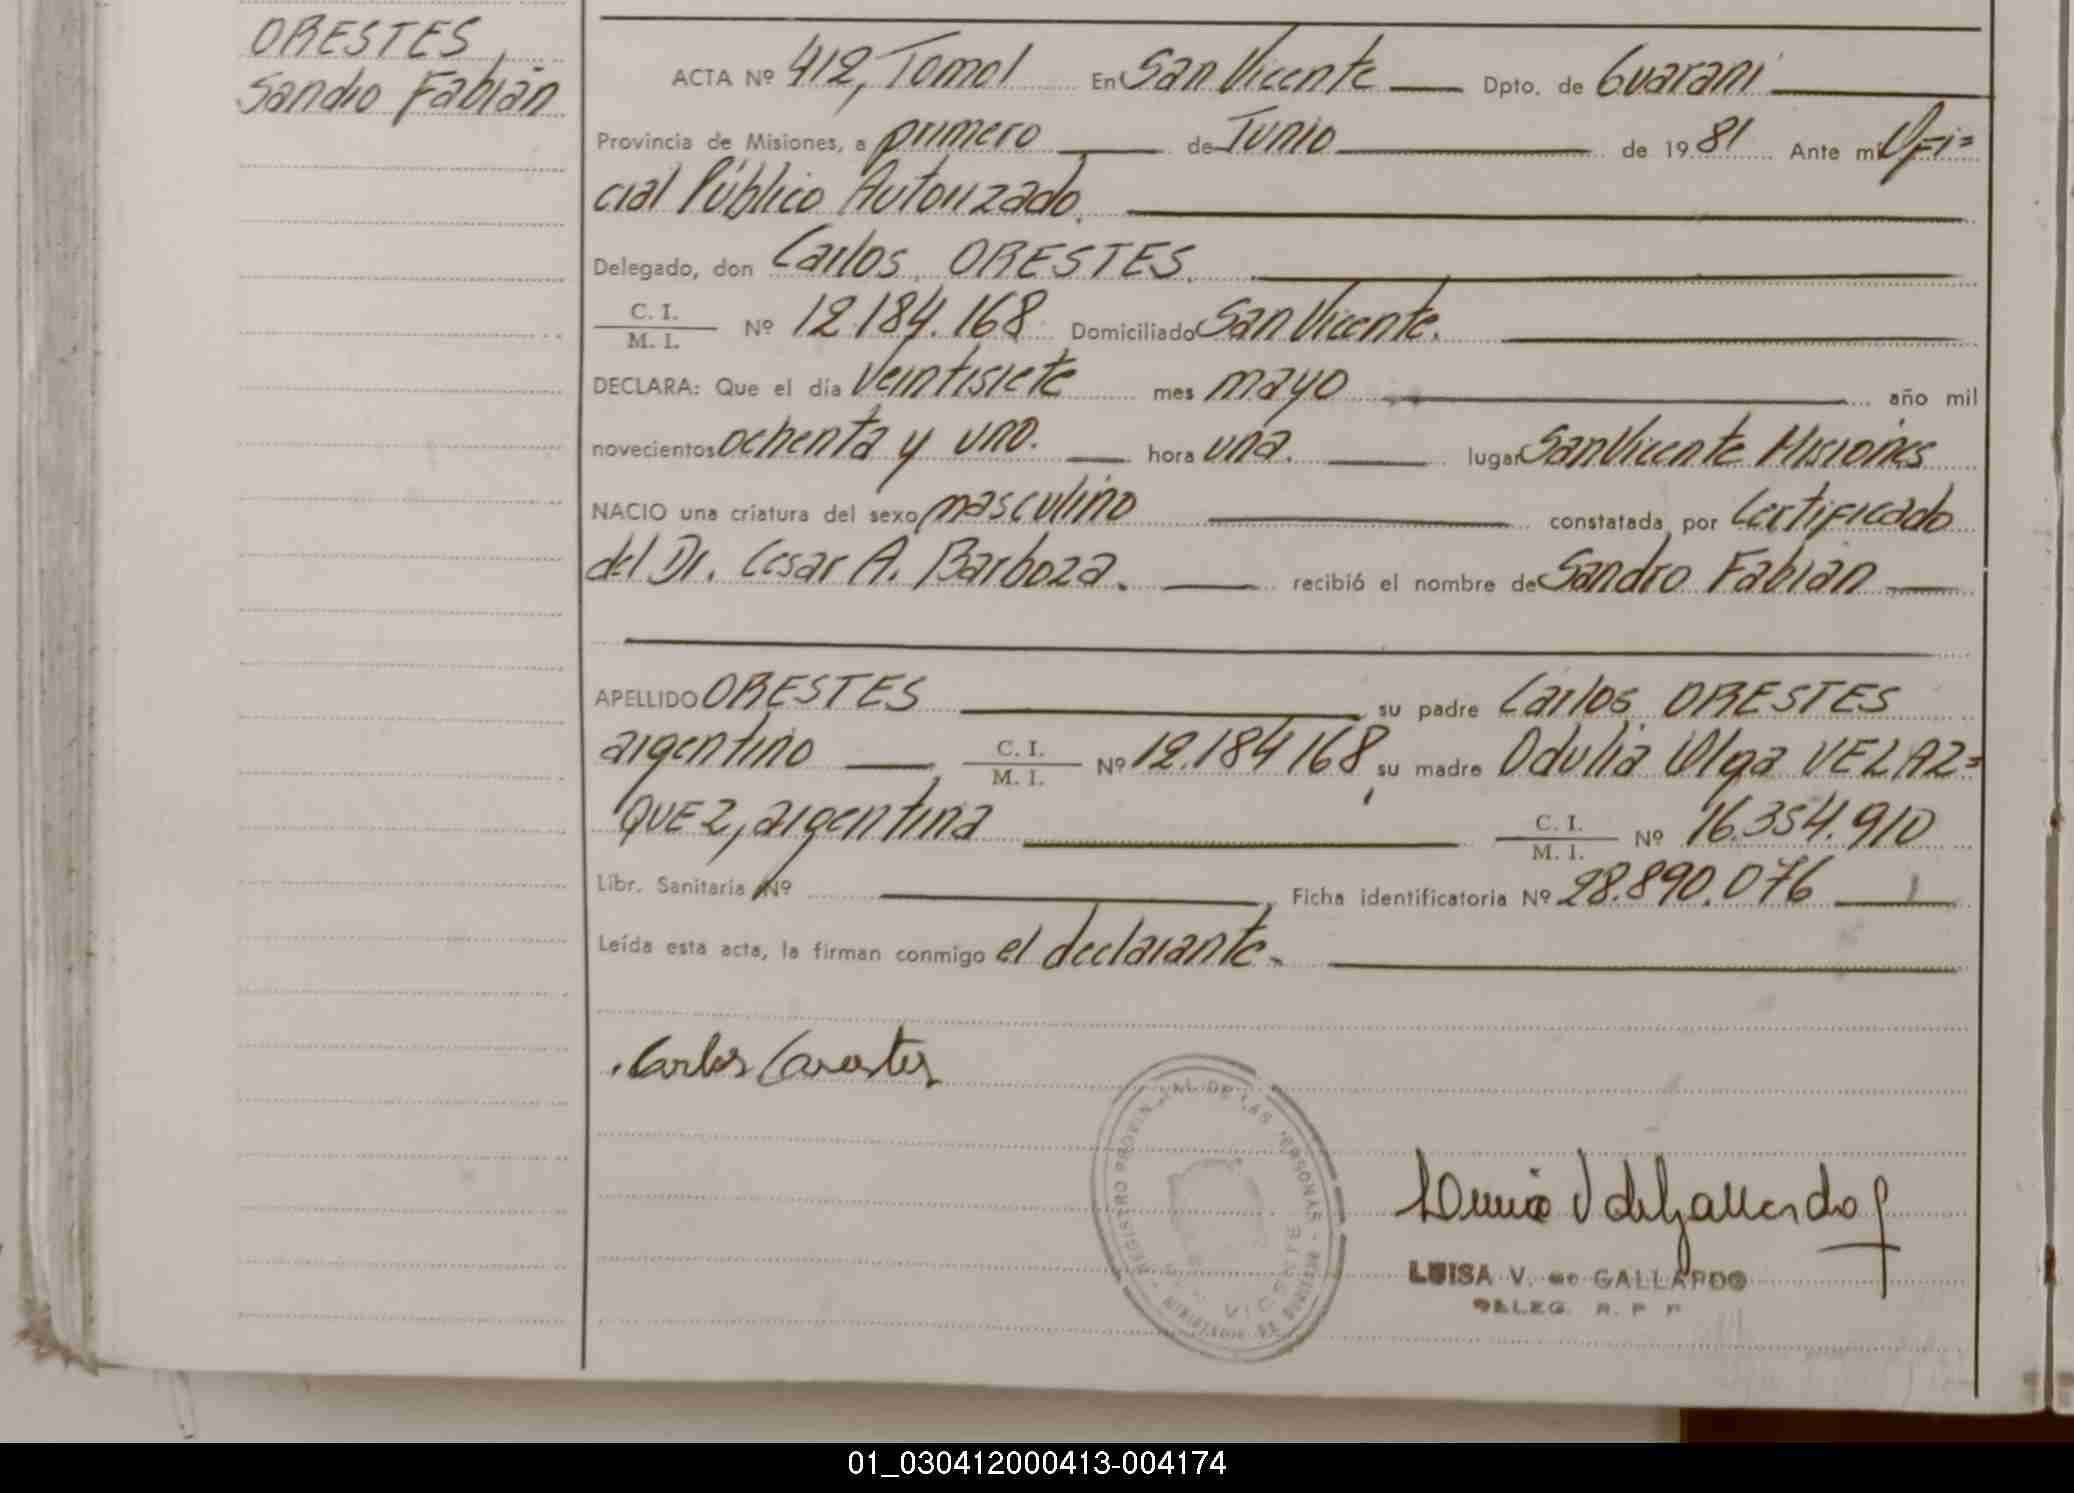 ORESTES,
Sandro Fabián
ACTA Nº 412, Tomo I En San Vicente Dpto. de Guaraní
Provincia de Misiones, a primero de Junio de 1981 Ante mi Ofi=
cial Público Autorizado.
Delegado, don Carlos ORESTES.
C. I.
M. I.
Nº 12.184.168 Domiciliado San Vicente.
DECLARA: Que el día veintisiete mes mayo año mil
novecientos ochenta y uno. hora una. lugar San Vicente Misiones
NACIO una criatura del sexo masculino constatada por Certificado
del Dr. Cesar A. Barboza. recibió el nombre de Sandro Fabián
APELLIDO ORESTES su padre Carlos ORESTES
argentino, C. I.
M. I.
Nº 12.184168, su madre Odulia Olga VELAZ=
QUEZ, argentina C. I.
M. I.
Nº 16.354.910
Libr. Sanitaria Nº , Ficha identificatoria Nº 28.890.076
Leída esta acta, la firman conmigo el declarante.
Carlos
REGISTRO PROVINCIAL DE LAS PERSONAS
VICENTE
LUISA V. de GALLARDO
DELEG. R. P. P.
01_030412000413-004174